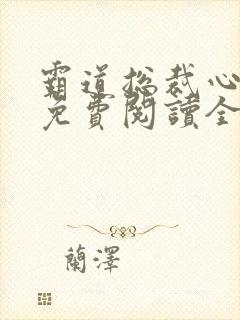 霸道总裁心
免費閱讀全
蘭澤